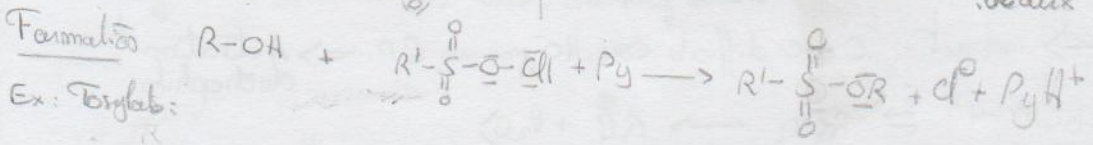 Formation R-OH + R'-S(=O)(=O)-O-Cl + Py → R'-S(=O)(=O)-OR + Cl⊖ + PyH+
Ex: Tosylate: